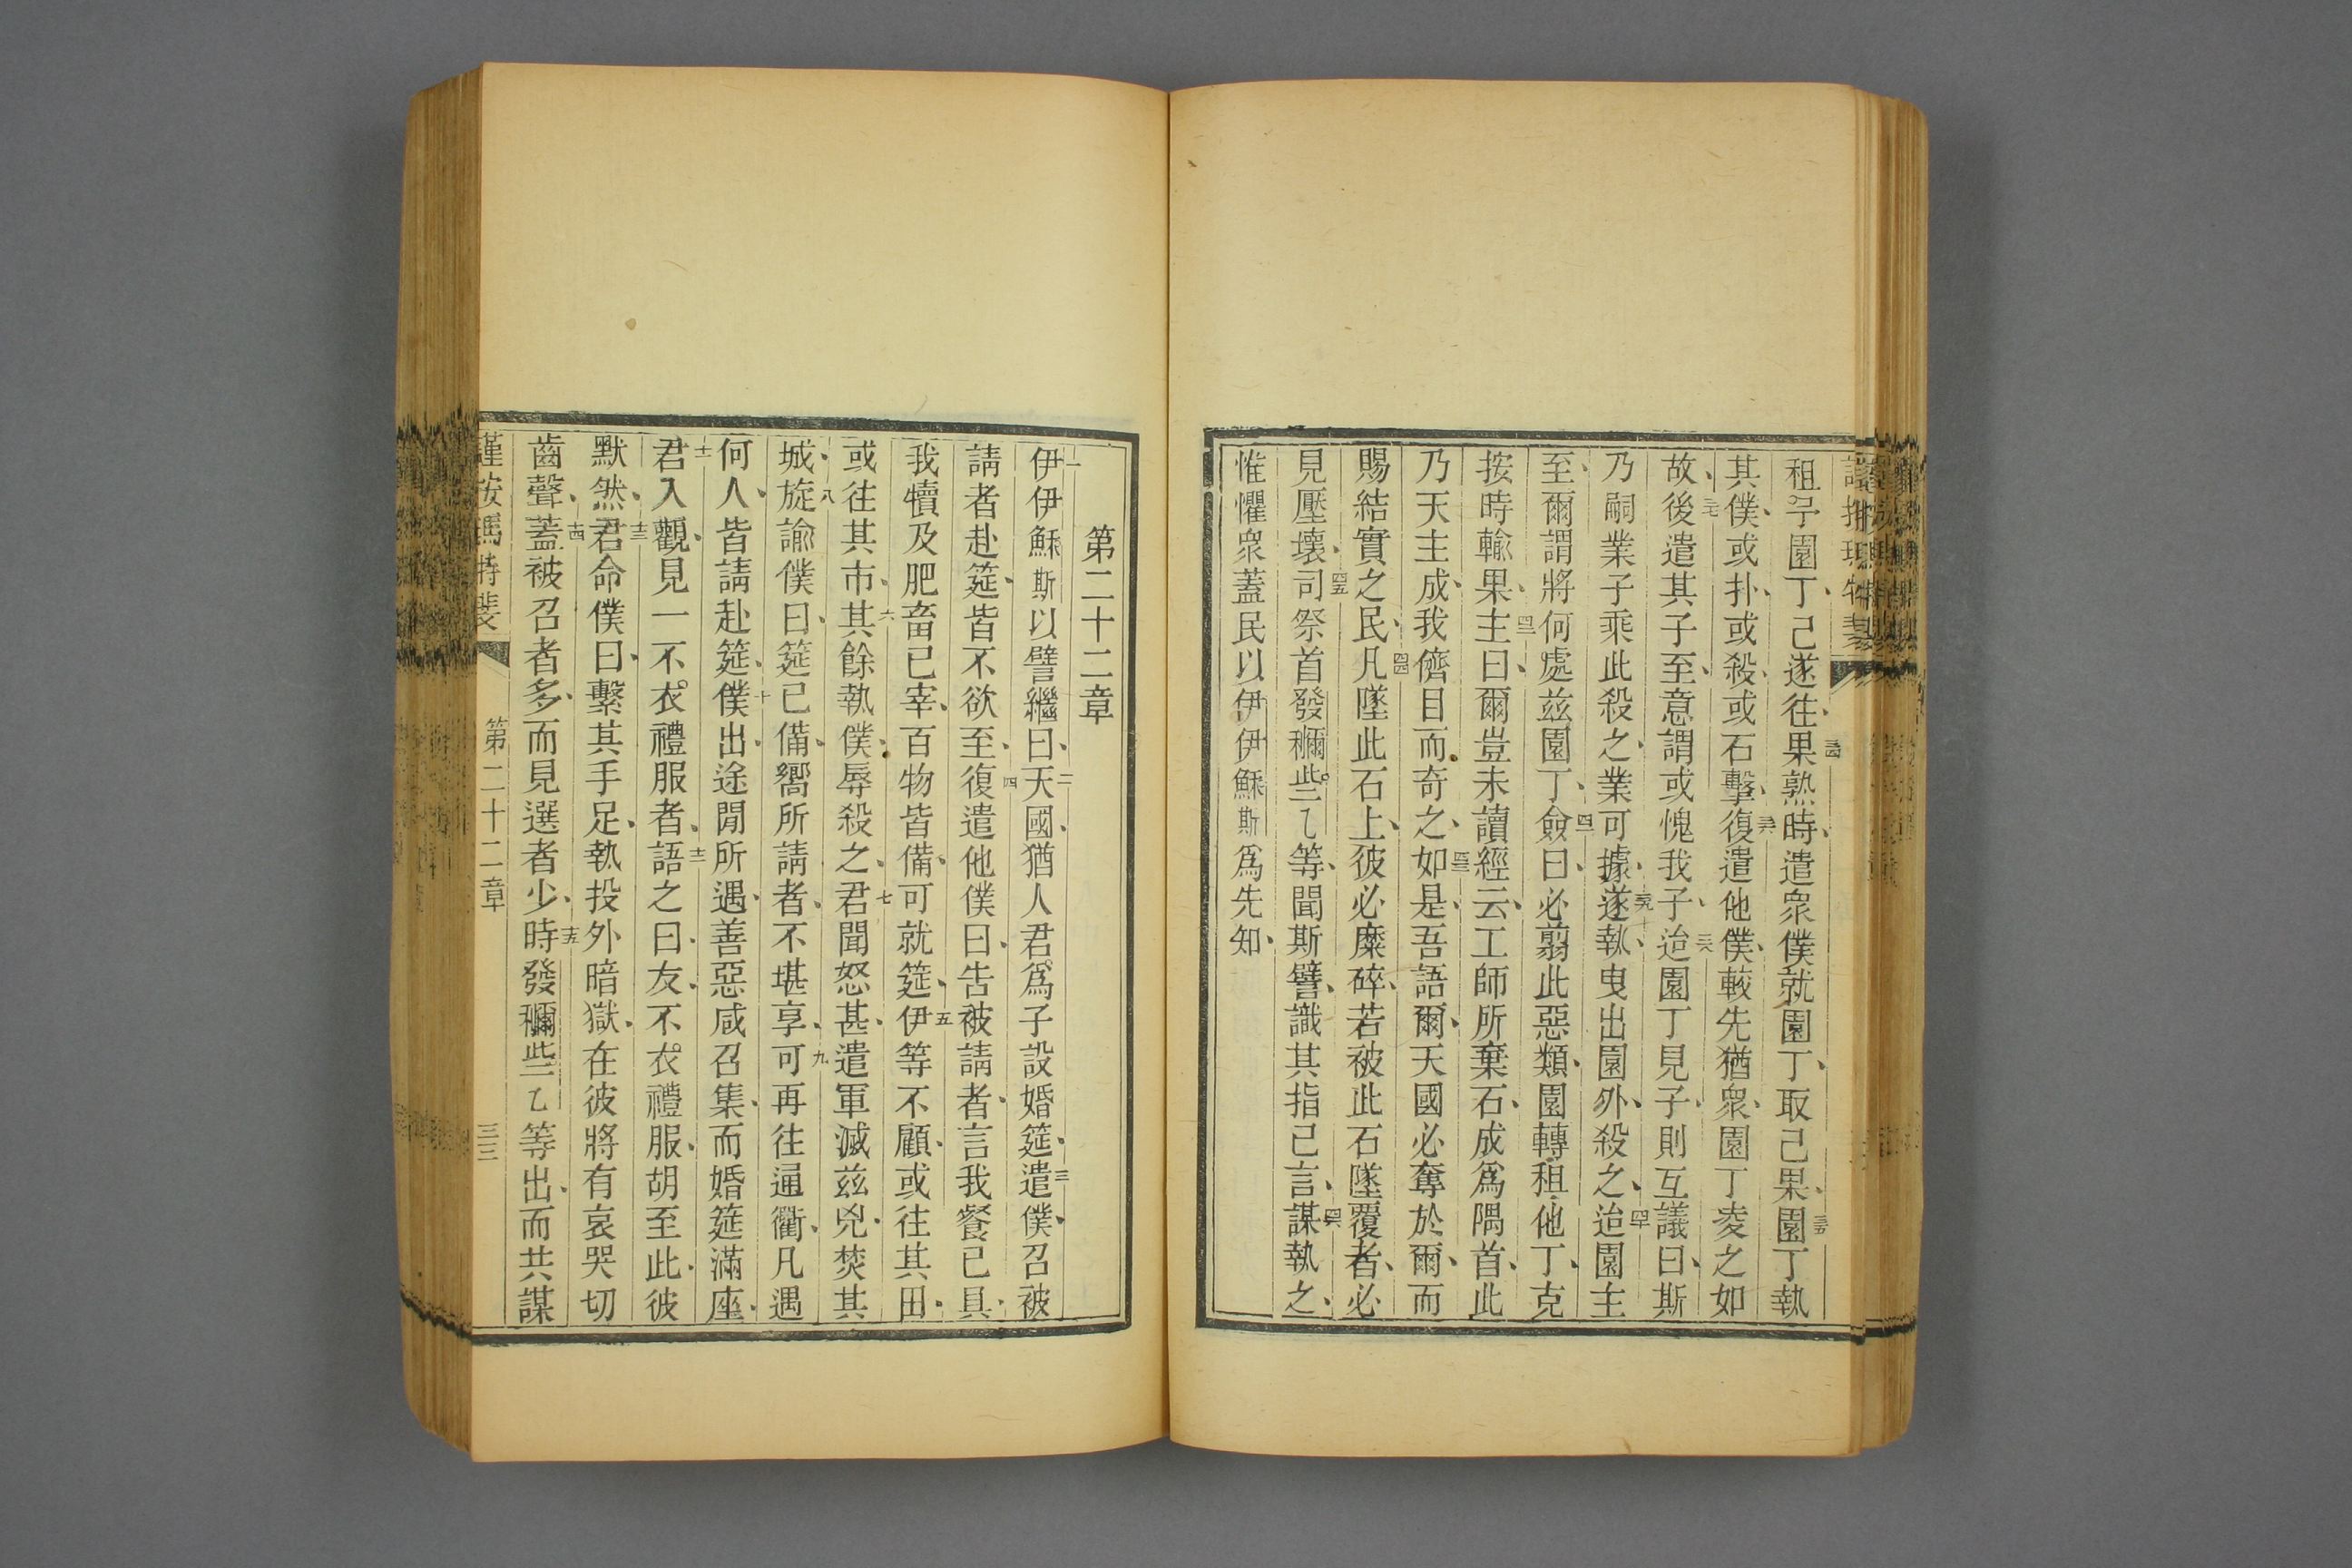 租予園丁、己遂往、果熟時、遣衆僕就園丁、取己果、園丁執
其僕、或扑、或殺、或石擊、復遣他僕、較先猶衆、園丁凌之如
故、後遣其子至、意謂或愧我子、迨園丁見子、則互議曰、斯
乃嗣業子乘此殺之、業可據、遂執、曳出園外、殺之、迨園主
至、爾謂將何處兹園丁、僉曰、必翦此惡類、園轉租他丁、克
按時輸果、主曰、爾豈未讀經云、工師所棄石、成爲隅首、此
乃天主成、我儕目而奇之、如是、吾語爾、天國必奪於爾、而
賜結實之民、凡墜此石上、彼必糜碎、若被此石墜覆者、必
見壓壞、司祭首發穪些乙等、聞斯譬、識其指己言、謀執之、
惟懼衆蓋民以伊伊穌斯爲先知、
第二十二章
伊伊穌斯以譬繼曰、天國、猶人君爲子設婚筵、遣僕、召被
請者赴筵、皆不欲至、復遣他僕曰、告被請者、言我餐已具、
我犢及肥畜已宰、百物皆備、可就筵、伊等不顧、或往其田、
或往其市、其餘執僕、辱殺之、君聞怒甚、遣軍滅兹兇、焚其
城、旋諭僕曰、筵已備、嚮所請者、不堪享、可再往通衢、凡遇
何人、皆請赴筵、僕出、途間所遇、善惡咸召集、而婚筵滿座、
君入觀、見一不衣禮服者、語之曰、友、不衣禮服、胡至此、彼
默然、君命僕曰、繫其手足、執投外暗獄、在彼將有哀哭切
齒聲、蓋被召者多、而見選者少、時發穪些乙等出、而共謀
謹按瑪特斐 第二十二章 三三